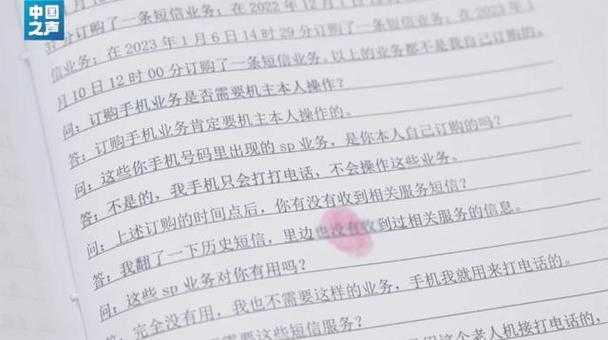 中国之声
分订购了一条短信业务；在 2022 年 12 月 1
信业务；在 2023 年 1 月 6 日 14 时 29 分订购了一条短信业务，
月 10 日 12 时 00 分订购了一条短信业务。以上的业务都不是我自己订购的。
问：订购手机业务是否需要机主本人操作？
答：订购手机业务肯定要机主本人操作的。
问：这些你手机号码里出现的 sp 业务，是你本人自己订购的吗？
答：不是的，我手机只会打打电话，不会操作这些业务。
问：上述订购的时间点后，你有没有收到相关服务短信？
答：我翻了一下历史短信，里边也没有收到过相关服务的信息。
问：这些 sp 业务对你有用吗？
答：完全没有用，我也不需要这样的业务，手机我就用来打电话的。
需要这些短信服务？
这个老人机接打电话的，